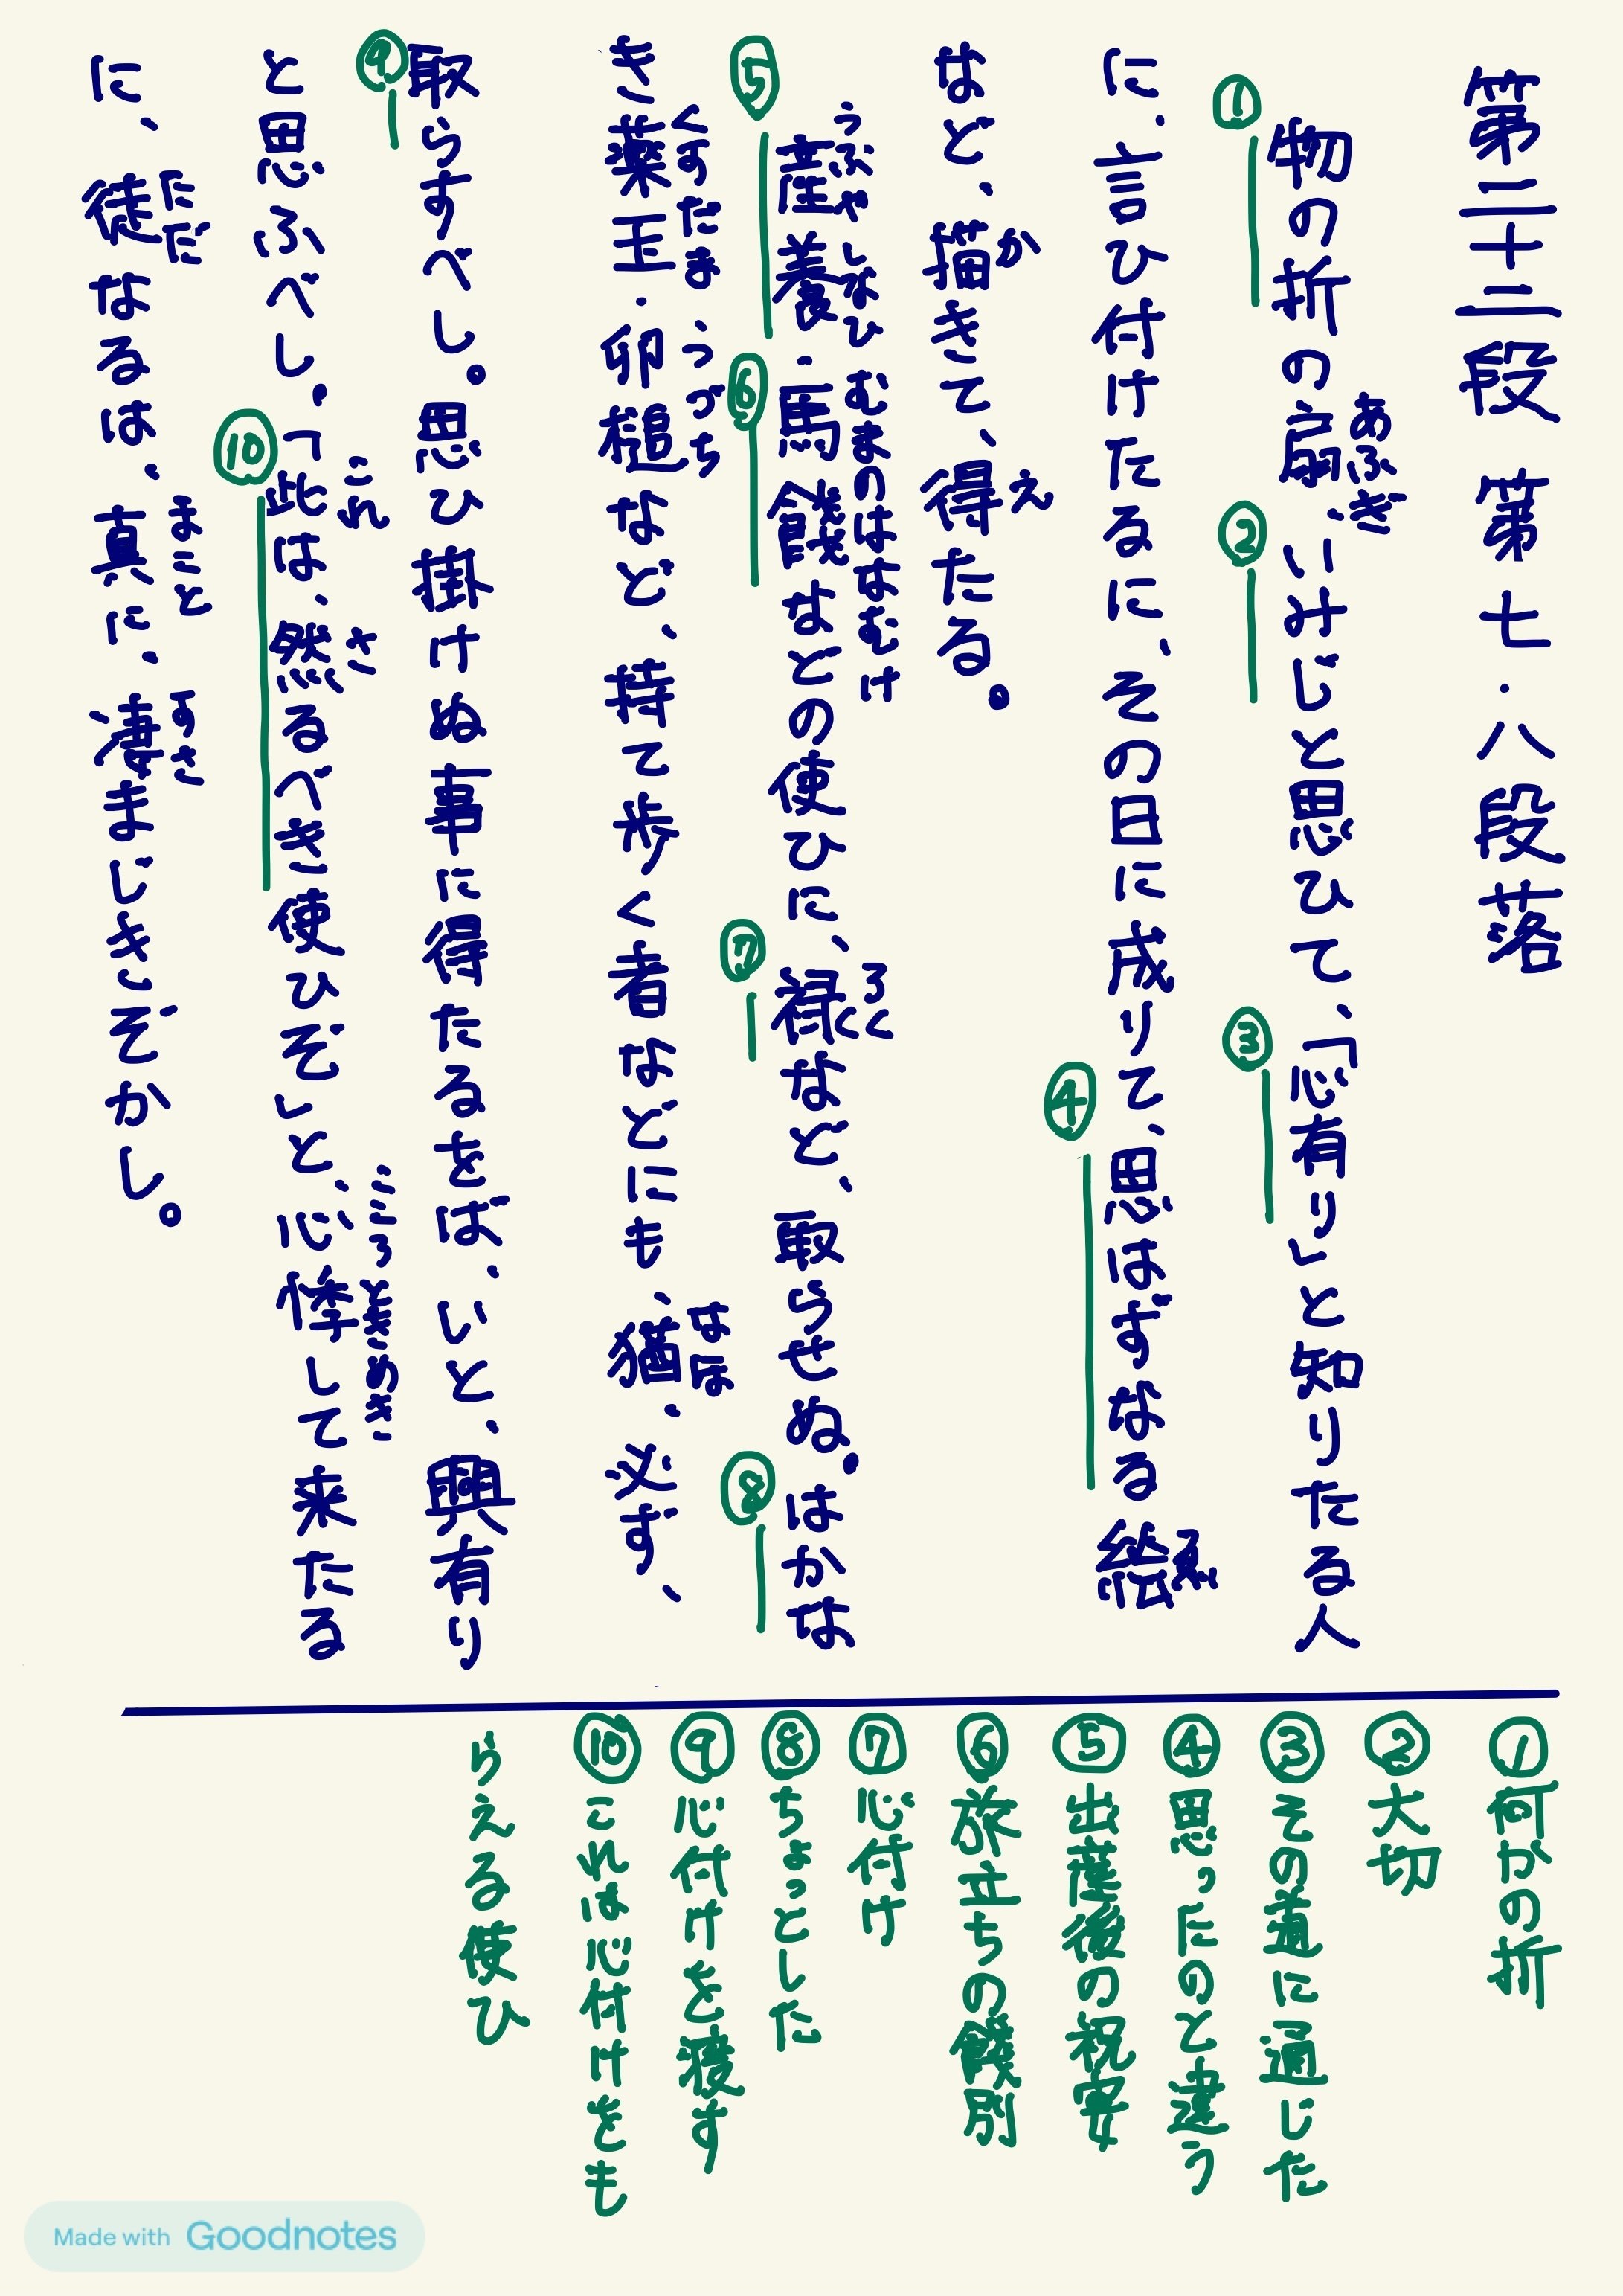 第二十二段 第七・八段落
物の折の扇、いみじと思ひて、「心有り」と知りたる人
あふぎ
に、言ひ付けたるに、その日に成りて、思はずなる絵
ゑ
など、描きて、得たる。
か
え
産養・馬餞などの使ひに、禄など、取らせぬ。はかな
うぶやしなひ
むまのはなむけ
ろく
き薬玉・卯槌など、持て歩く者などにも、猶、必ず、
くすだま
うづち
なほ
取らすべし。思ひ掛けぬ事に得たるをば、いと、興有り
と思ふべし。「此は、然るべき使ひぞ」と、心悸して来たる
これ
さ
こころときめき
に、徒なるは、真に、凄まじきぞかし。
ただ
まこと
すさ
①
②
③
④
⑤
⑥
⑦
⑧
⑨
⑩
①何かの折
②大切
③その道に通じた
④思ったのと違う
⑤出産後の祝宴
⑥旅立ちの餞別
⑦心付け
⑧ちょっとした
⑨心付けを渡す
⑩これは心付けをも
らえる使ひ
Made with Goodnotes